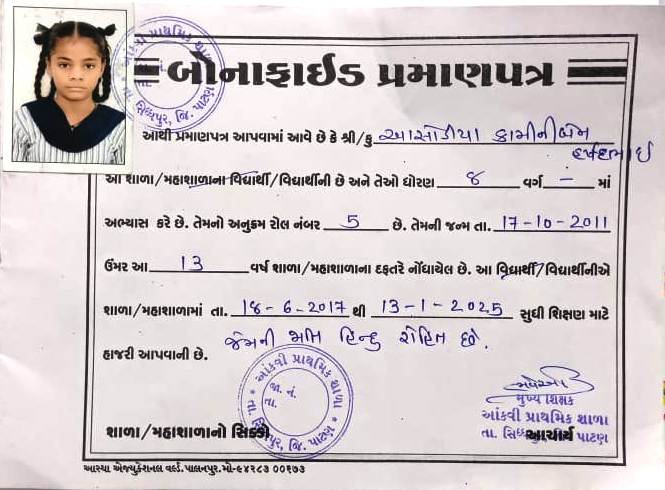 બોનાફાઈડ પ્રમાણપત્ર
આથી પ્રમાણપત્ર આપવામાં આવે છે કે શ્રી/કુ આસોડીયા કામીનીબેન
હર્ષદભાઈ
આ શાળા/મહાશાળાના વિદ્યાર્થી/વિદ્યાર્થીની છે અને તેઓ ધોરણ ૪ વર્ગ - માં
અભ્યાસ કરે છે. તેમનો અનુક્રમ રોલ નંબર 5 છે. તેમની જન્મ તા. 17-10-2011
ઉંમર આ 13 વર્ષ શાળા/મહાશાળાના દફતરે નોંધાયેલ છે. આ વિદ્યાર્થી/વિદ્યાર્થીનીએ
શાળા/મહાશાળામાં તા. 18-6-2017 થી 13-1-2025 સુધી શિક્ષણ માટે
હાજરી આપવાની છે. જેમની જાતિ હિન્દુ રોહિત છે.
આંકવી પ્રાથમિક શાળા
જા. નં.
તા.
તા. સિધ્ધપુર, જિ. પાટણ
મુખ્ય શિક્ષક
આંકવી પ્રાથમિક શાળા
શાળા/મહાશાળાનો સિક્કો
આચાર્ય
તા. સિધ્ધપુર પાટણ
આસ્થા એજ્યુકેશનલ વર્લ્ડ. પાલનપુર.મો-૯૪૨૮૩ ૦૦૧૭૩